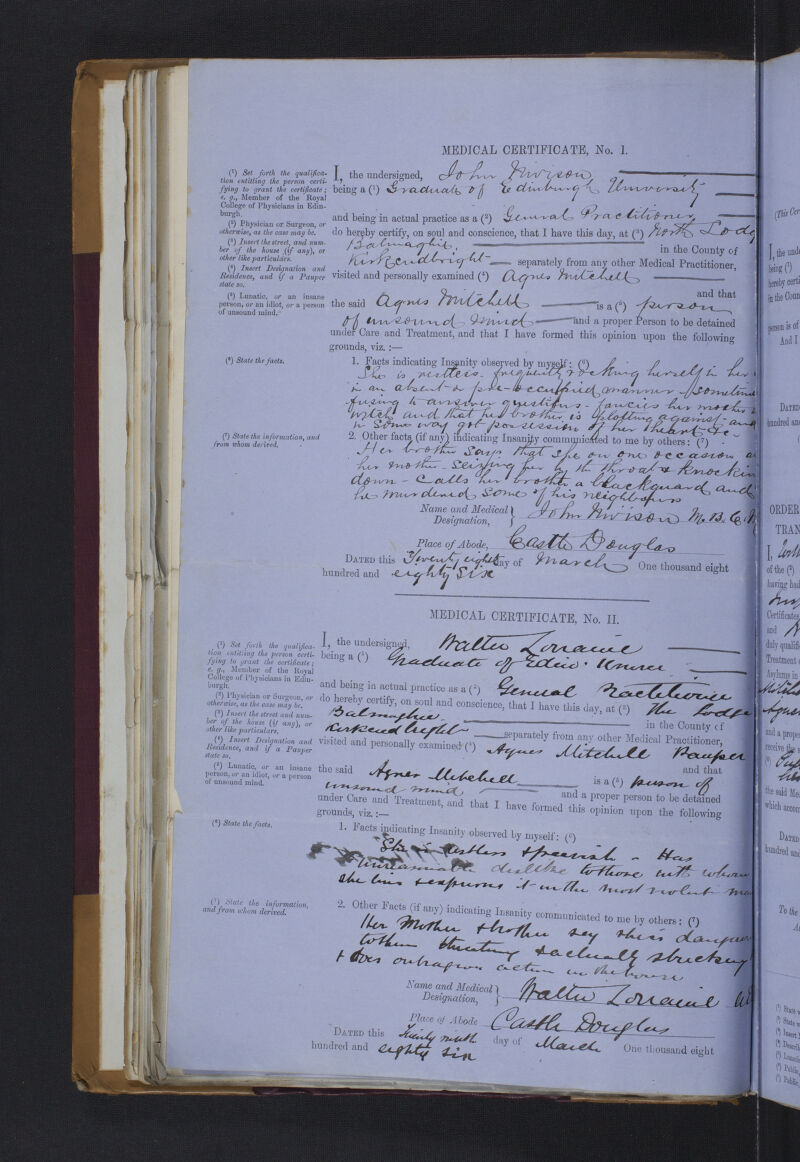 MEDICAL CERTIFICATE, No. I.
(¹) Set forth the qualifica-
tion entitling the person certi-
fying to grant the certificate;
e. g., Member of the Royal
College of Physicians in Edin-
burgh.
(²) Physician or Surgeon, or
otherwise, as the case may be.
(³) Insert the street, and num-
ber of the house (if any), or
other like particulars.
(⁴) Insert Designation and
Residence, and if a Pauper
state so.
(⁵) Lunatic, or an insane
person, or an idiot, or a person
of unsound mind.
(⁶) State the facts.
(⁷) State the information, and
from whom derived.
I, the undersigned, John Nivison
being a (¹) Graduate of Edinburgh University
and being in actual practice as a (²) General Practitioner
do hereby certify, on soul and conscience, that I have this day, at (³) North Lodge
Balmaghie. in the County of
Kirkcudbright separately from any other Medical Practitioner,
visited and personally examined (⁴) Agnes Mitchell
and that
the said Agnes Mitchell is a (⁵) person
of unsound mind and a proper Person to be detained
under Care and Treatment, and that I have formed this opinion upon the following
grounds, viz. :—
1. Facts indicating Insanity observed by myself: (⁶)
She is restless frequently rocking herself in her
in an absent or pre-occupied manner sometimes
fusing to answer questions - fancies her mother a
witch and that her brother is plotting against and
in some way got possession of her heart &c-
2. Other facts (if any) indicating Insanity communicated to me by others: (⁷)
Her brother says that she on one occasion
her mother seizing her by the throat & knockin
down - Calls her brother a blackguard and
he murdered some of his neighbours
Name and Medical Designation, John Nivison M.B. C.M
Place of Abode, Castle Douglas
DATED this Twenty eighth day of March One thousand eight
hundred and eighty six
MEDICAL CERTIFICATE, No. II.
(¹) Set forth the qualifica-
tion entitling the person certi-
fying to grant the certificate;
e. g., Member of the Royal
College of Physicians in Edin-
burgh.
(²) Physician or Surgeon, or
otherwise, as the case may be.
(³) Insert the street and num-
ber of the house (if any), or
other like particulars.
(⁴) Insert Designation and
Residence, and if a Pauper
state so.
(⁵) Lunatic, or an insane
person, or an idiot, or a person
of unsound mind.
(⁶) State the facts.
(⁷) State the information,
and from whom derived.
I, the undersigned, Walter Lorraine
being a (¹) Graduate of Edin.
and being in actual practice as a (²) General Practitioner
do hereby certify, on soul and conscience, that I have this day, at (³) The Lodge
Balmaghie. in the County of
Kirkcudbright separately from any other Medical Practitioner,
visited and personally examined (⁴) Agnes Mitchell Pauper
and that
the said Agnes Mitchell is a (⁵) person of
unsound mind and a proper person to be detained
under Care and Treatment, and that I have formed this opinion upon the following
grounds, viz. :—
1. Facts indicating Insanity observed by myself: (⁶)
She is restless & peevish - Has
unreasonable dislike to those with whom
she lives & expresses it in the most violent
2. Other Facts (if any) indicating Insanity communicated to me by others: (⁷)
Her Mother & brother say she is
to them threatening & actually striking
& does outrageous action in the house
Name and Medical Designation, Walter Lorraine
Place of Abode Castle Douglas
DATED this Twenty ninth day of March One thousand eight
hundred and eighty six
(This Cer
I, the unde
being (¹)
hereby certi
in the Coun
person is of
And I
DATED
hundred and
ORDER
TRAN
I,
of the (²)
having had
Certificates
and
duly qualifi
Treatment
Asylums in
and a proper
receive the
the said Me
which accom
DATED
hundred and
To the